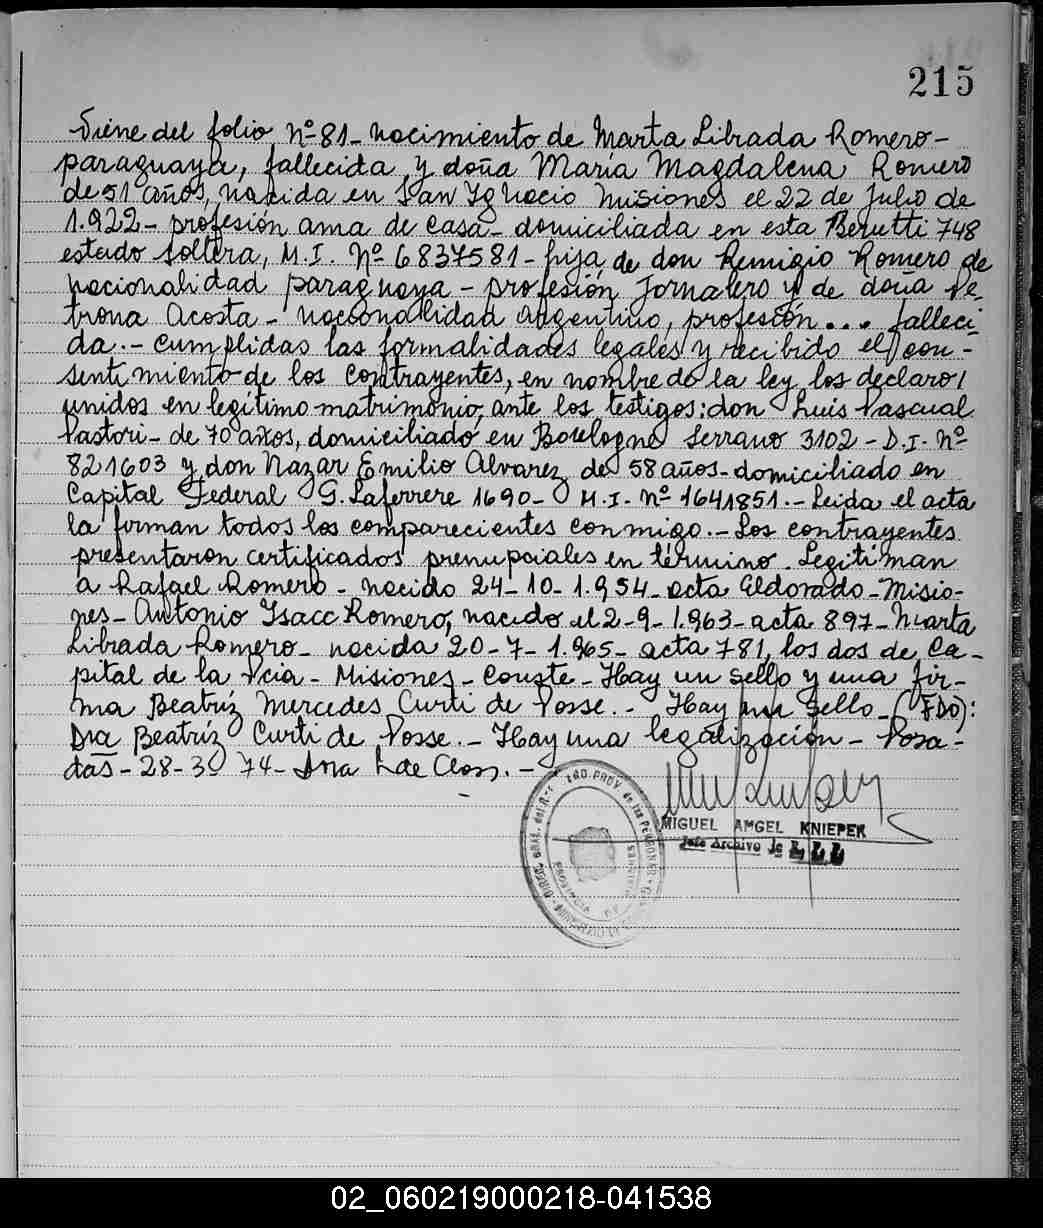 215
Viene del folio Nº 81 - nacimiento de Marta Librada Romero -
paraguaya, fallecida y doña María Magdalena Romero
de 51 años, nacida en San Ignacio Misiones el 22 de Julio de
1.922 - profesión ama de casa - domiciliada en esta Berutti 748
estado soltera, M.I. Nº 6837581 - hija de don Remigio Romero de
nacionalidad paraguaya - profesión jornalero y de doña Pe-
trona Acosta - nacionalidad argentino, profesión ... falleci
da. - Cumplidas las formalidades legales y recibido el con-
sentimiento de los contrayentes, en nombre de la ley los declaro
unidos en legítimo matrimonio, ante los testigos: don Luis Pascual
Pastori - de 70 años, domiciliado en Boulogne Serrano 3102 - D.I. Nº
821603 y don Nazar Emilio Alvarez de 58 años - domiciliado en
Capital Federal G. Laferrere 1690 - M.I. Nº 1641851. - Leida el acta
la firman todos los comparecientes conmigo. - Los contrayentes
presentaron certificados prenupciales en término. Legitiman
a Rafael Romero - nacido 24-10-1.954 - acta Eldorado - Misio-
nes - Antonio Isacc Romero, nacido el 2-9-1.963 - acta 897 - Marta
Librada Romero - nacida 20-7-1.965 - acta 781, los dos de Ca-
pital de la Pcia - Misiones - Conste - Hay un sello y una fir-
ma Beatríz Mercedes Curti de Posse. - Hay un sello - (FDO):
Dra Beatríz Curti de Posse. - Hay una legalización - Posa-
das - 28-3 74 -
MIGUEL ANGEL KNIEPER
Jefe Archivo
02_060219000218-041538